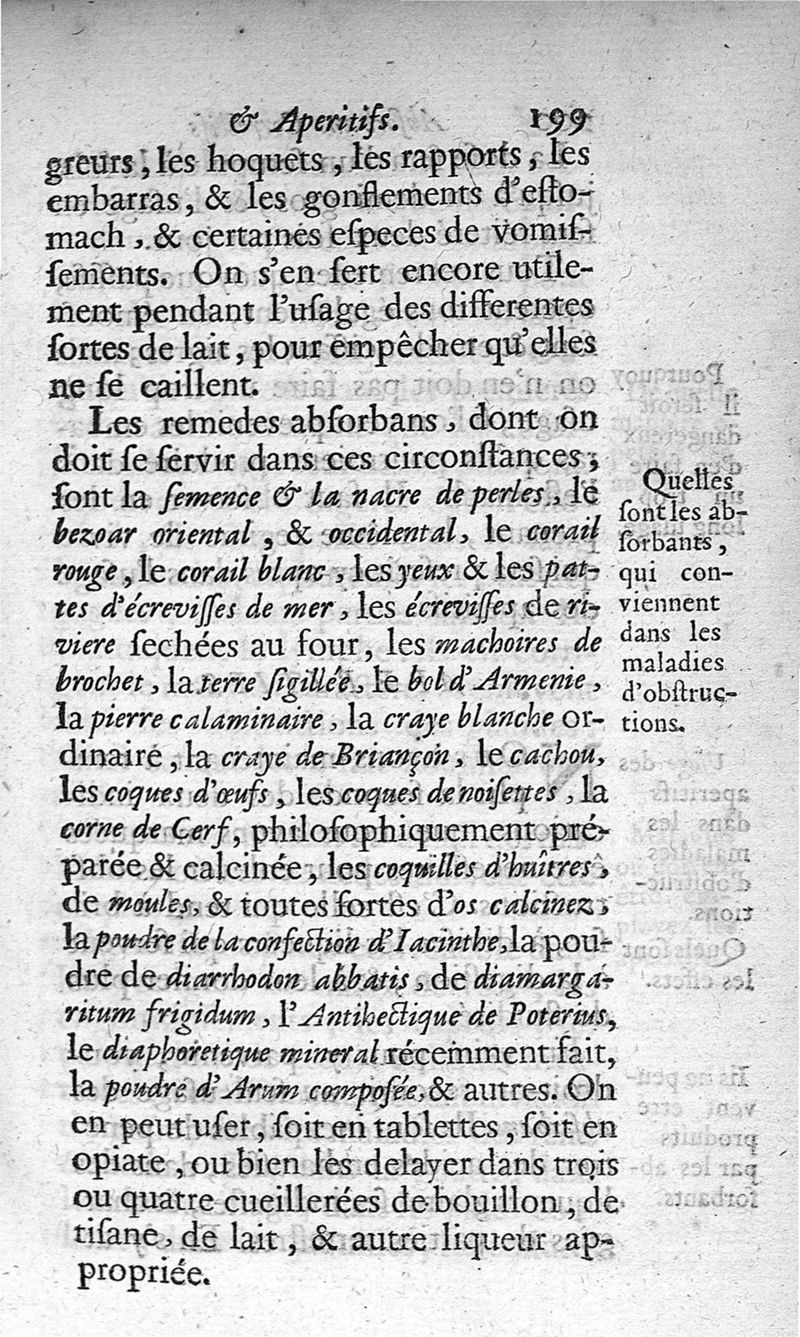 & Aperitifs. 199
greurs, les hoquets, les rapports, les
embarras, & les gonflements d'esto-
mach, & certaines especes de vomiſ-
ſements. On s'en ſert encore utile-
ment pendant l'uſage des differentes
ſortes de lait, pour empêcher qu'elles
ne ſe caillent.
Les remedes abſorbans, dont on
doit ſe ſervir dans ces circonſtances;
ſont la ſemence & la nacre de perles, le
bezoar oriental, & occidental, le corail
rouge, le corail blanc, les yeux & les pat-
tes d'écreviſſes de mer, les écreviſſes de ri-
viere ſechées au four, les machoires de
brochet, la terre ſigillée, le bol d'Armenie,
la pierre calaminaire, la craye blanche or-
dinaire, la craye de Briançon, le cachou,
les coques d'œufs, les coques de noiſettes, la
corne de Cerf, philoſophiquement pré-
parée & calcinée, les coquilles d'huîtres,
de moules, & toutes ſortes d'os calcinez;
la poudre de la confection d'Iacinthe, la pou-
dre de diarrhodon abbatis, de diamarga-
ritum frigidum, l'Antihectique de Poterius,
le diaphoretique mineral récemment fait,
la poudre d'Arum compoſée, & autres. On
en peut uſer, ſoit en tablettes, ſoit en
opiate, ou bien les delayer dans trois
ou quatre cueillerées de bouillon, de
tiſane, de lait, & autre liqueur ap-
propriée.
Quelles
ſont les ab-
ſorbants,
qui con-
viennent
dans les
maladies
d'obſtruc-
tions.